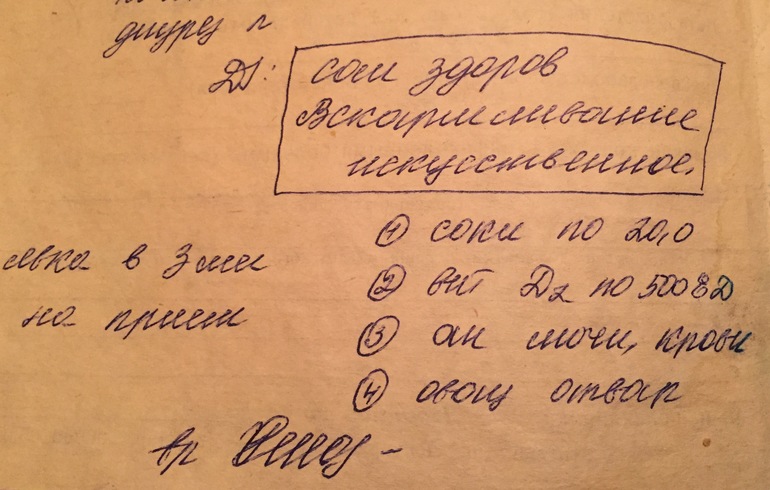 диурез N
DS: сом здоров
Вскармливание
искусственное.
① соки по 20,0
явка в 3 мес
② вит Д₂ по 500 ЕД
на прием
③ ан мочи, крови
④ овощ отвар
вр